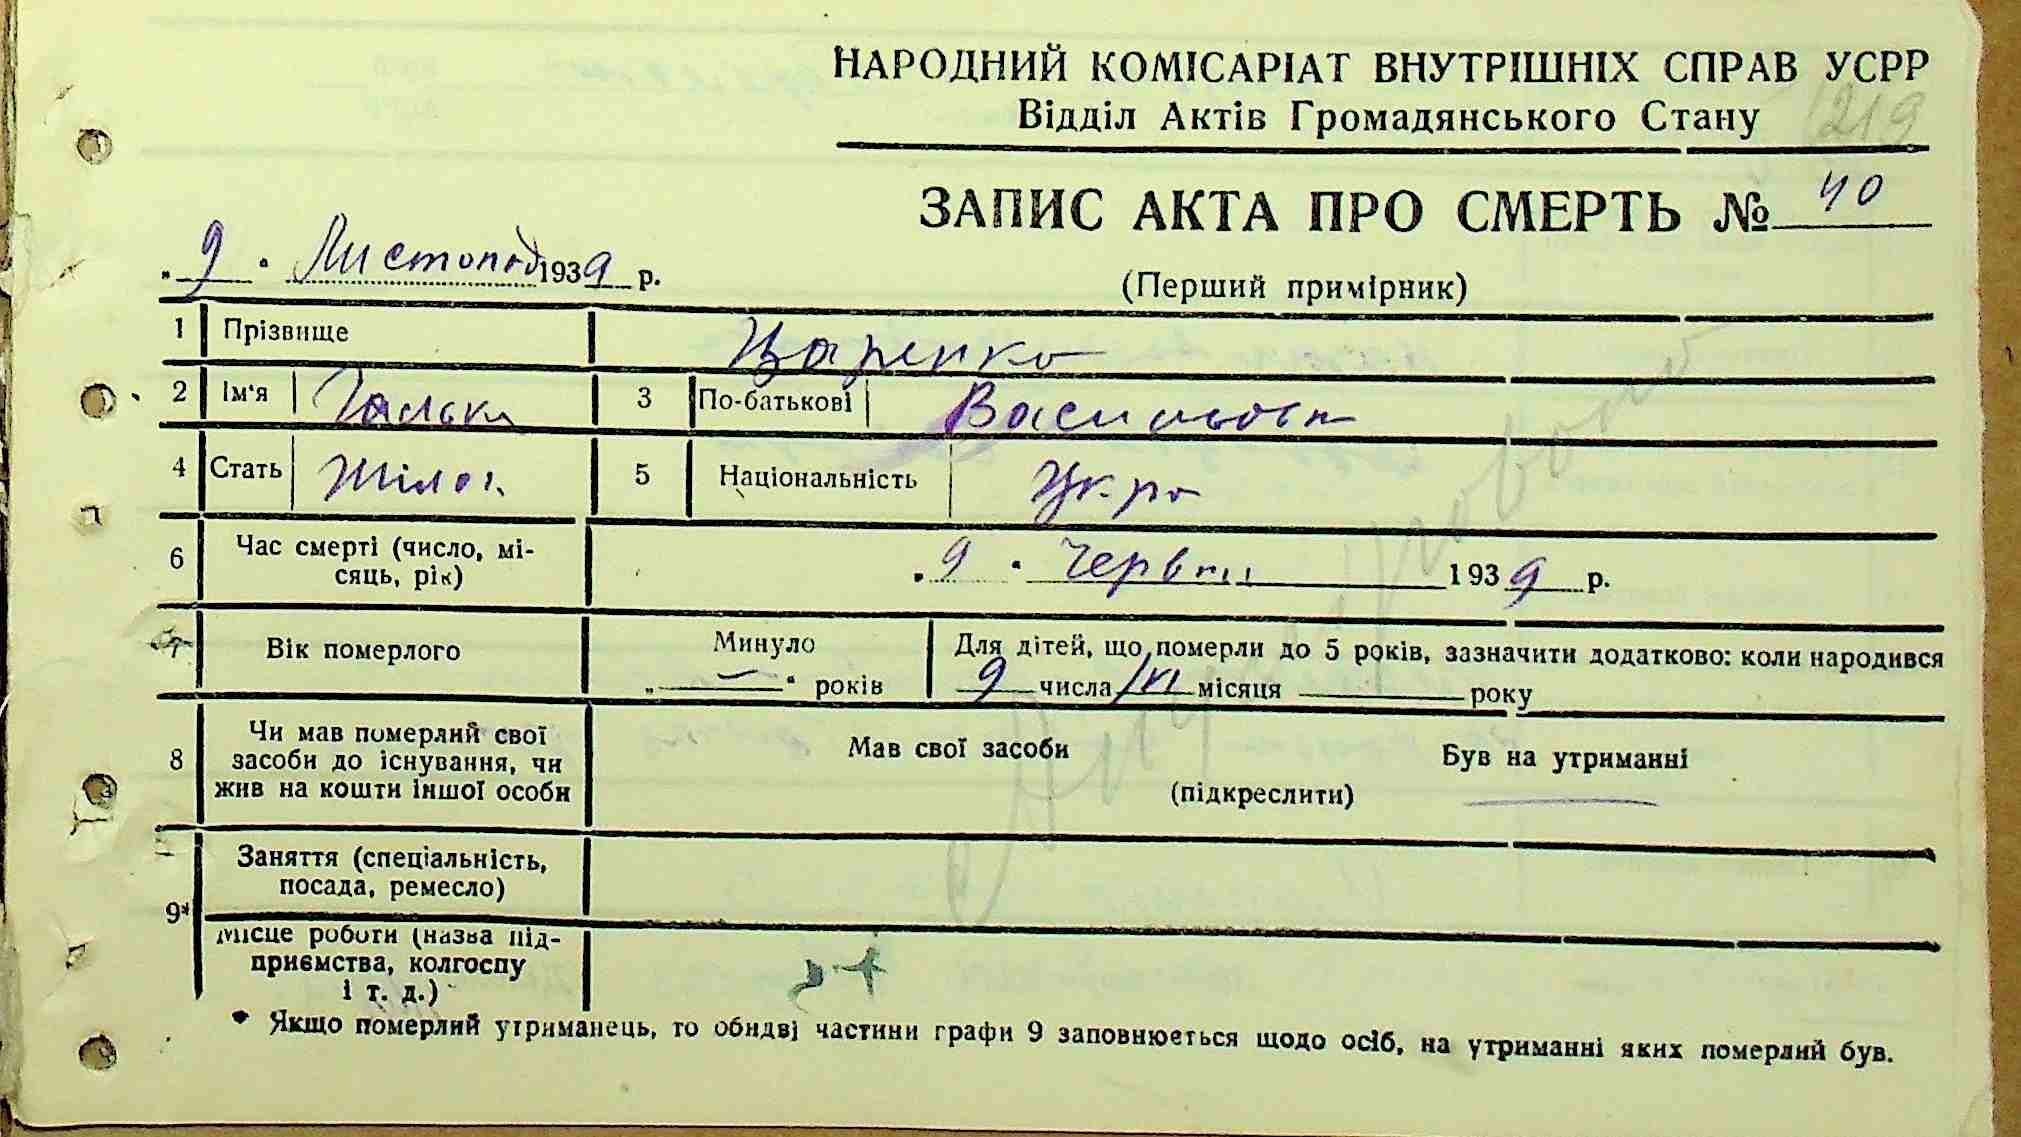 НАРОДНИЙ КОМІСАРІАТ ВНУТРІШНІХ СПРАВ УСРР
Відділ Актів Громадянського Стану
219
ЗАПИС АКТА ПРО СМЕРТЬ № 40
„ 9 “ Листопад 1939 р.
(Перший примірник)
1 Прізвище Царенко
2 Ім'я 3 По-батькові
4 Стать 5 Національність Укр
6 Час смерті (число, мі-
сяць, рік) „ 9 “ Червня 1939 р.
7 Вік померлого Минуло „ — “ років Для дітей, що померли до 5 років, зазначити додатково: коли народився
9 числа місяця року
8 Чи мав померлий свої
засоби до існування, чи
жив на кошти іншої особи
Мав свої засоби Був на утриманні
(підкреслити)
9* Заняття (спеціальність,
посада, ремесло)
Місце роботи (назва під-
приємства, колгоспу
і т. д.)
* Якщо померлий утриманець, то обидві частини графи 9 заповнюється щодо осіб, на утриманні яких померлий був.